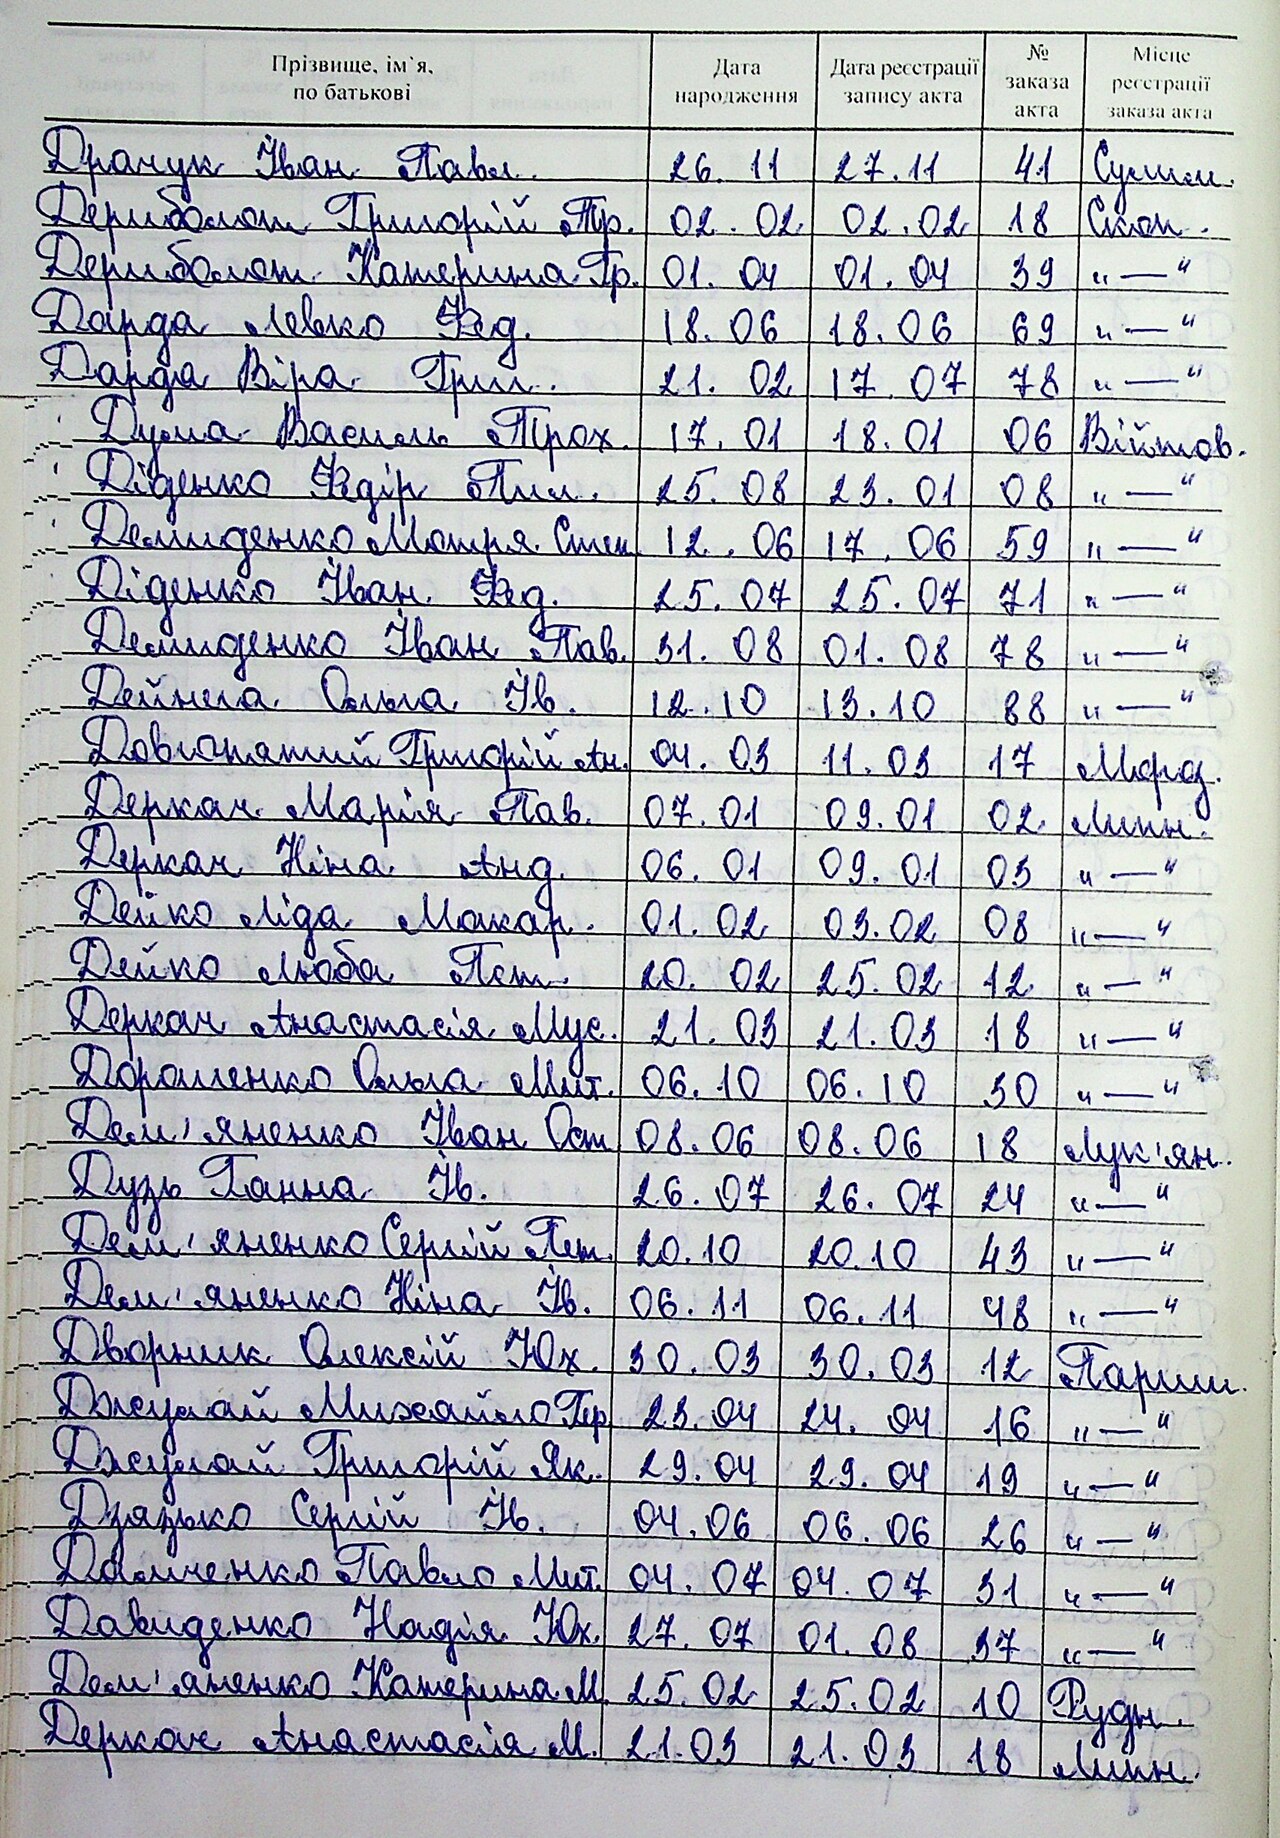 Прізвище, ім`я, по батькові Дата народження Дата реєстрації запису акта № заказа акта Місце реєстрації заказа акта
Драчук Іван Павл. 26.11 27.11 41 Сулим.
Дериболот Григорій Тр. 02.02 02.02 18 Скоп.
Дериболот Катерина Гр. 01.04 01.04 39 „—“
Дарда Левко Фед. 18.06 18.06 69 „—“
Дарда Віра Григ. 21.02 17.07 78 „—“
Дума Василь Трох. 17.01 18.01 06 Війтов.
Діденко Федір Пил. 25.08 23.01 08 „—“
Демиденко Мотря Степ. 12.06 17.06 59 „—“
Діденко Іван Фед. 25.07 25.07 71 „—“
Демиденко Іван Пав. 31.08 01.08 78 „—“
Дейнега Ольга Ів. 12.10 13.10 88 „—“
Довгопятий Григорій Ан. 04.03 11.03 17 Мороз.
Деркач Марія Пав. 07.01 09.01 02 Липн.
Деркач Ніна Анд. 06.01 09.01 03 „—“
Дейко Ліда Макар. 01.02 03.02 08 „—“
Дейко Люба Пет. 20.02 25.02 12 „—“
Деркач Анастасія Мус. 21.03 21.03 18 „—“
Дорошенко Ольга Мит. 06.10 06.10 30 „—“
Дем'яненко Іван Ост. 08.06 08.06 18 Лук'ян.
Дузь Ганна Ів. 26.07 26.07 24 „—“
Дем'яненко Сергій Пет. 20.10 20.10 43 „—“
Дем'яненко Ніна Ів. 06.11 06.11 48 „—“
Дворник Олексій Юх. 30.03 30.03 12 Париш.
Джулай Михайло Гер. 23.04 24.04 16 „—“
Джулай Григорій Як. 29.04 29.04 19 „—“
Дзязько Сергій Ів. 04.06 06.06 26 „—“
Демченко Павло Мит. 04.07 04.07 31 „—“
Давиденко Надія Юх. 27.07 01.08 37 „—“
Дем'яненко Катерина М. 25.02 25.02 10 Рудн.
Деркач Анастасія М. 21.03 21.03 18 Липн.